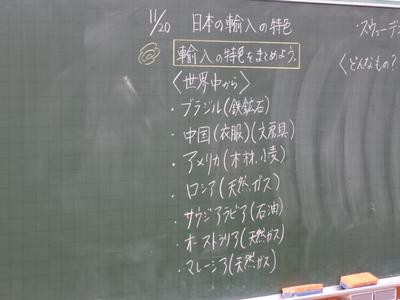 11/20 日本の輸入の特色
輸入の特色をまとめよう。
〈世界中から〉
・ブラジル(鉄鉱石)
・中国(衣服)(文房具)
・アメリカ(木材、小麦)
・ロシア(天然ガス)
・サウジアラビア(石油)
・オーストラリア(天然ガス)
・マレーシア(天然ガス)
・スウェーデン
〈どんなもの?